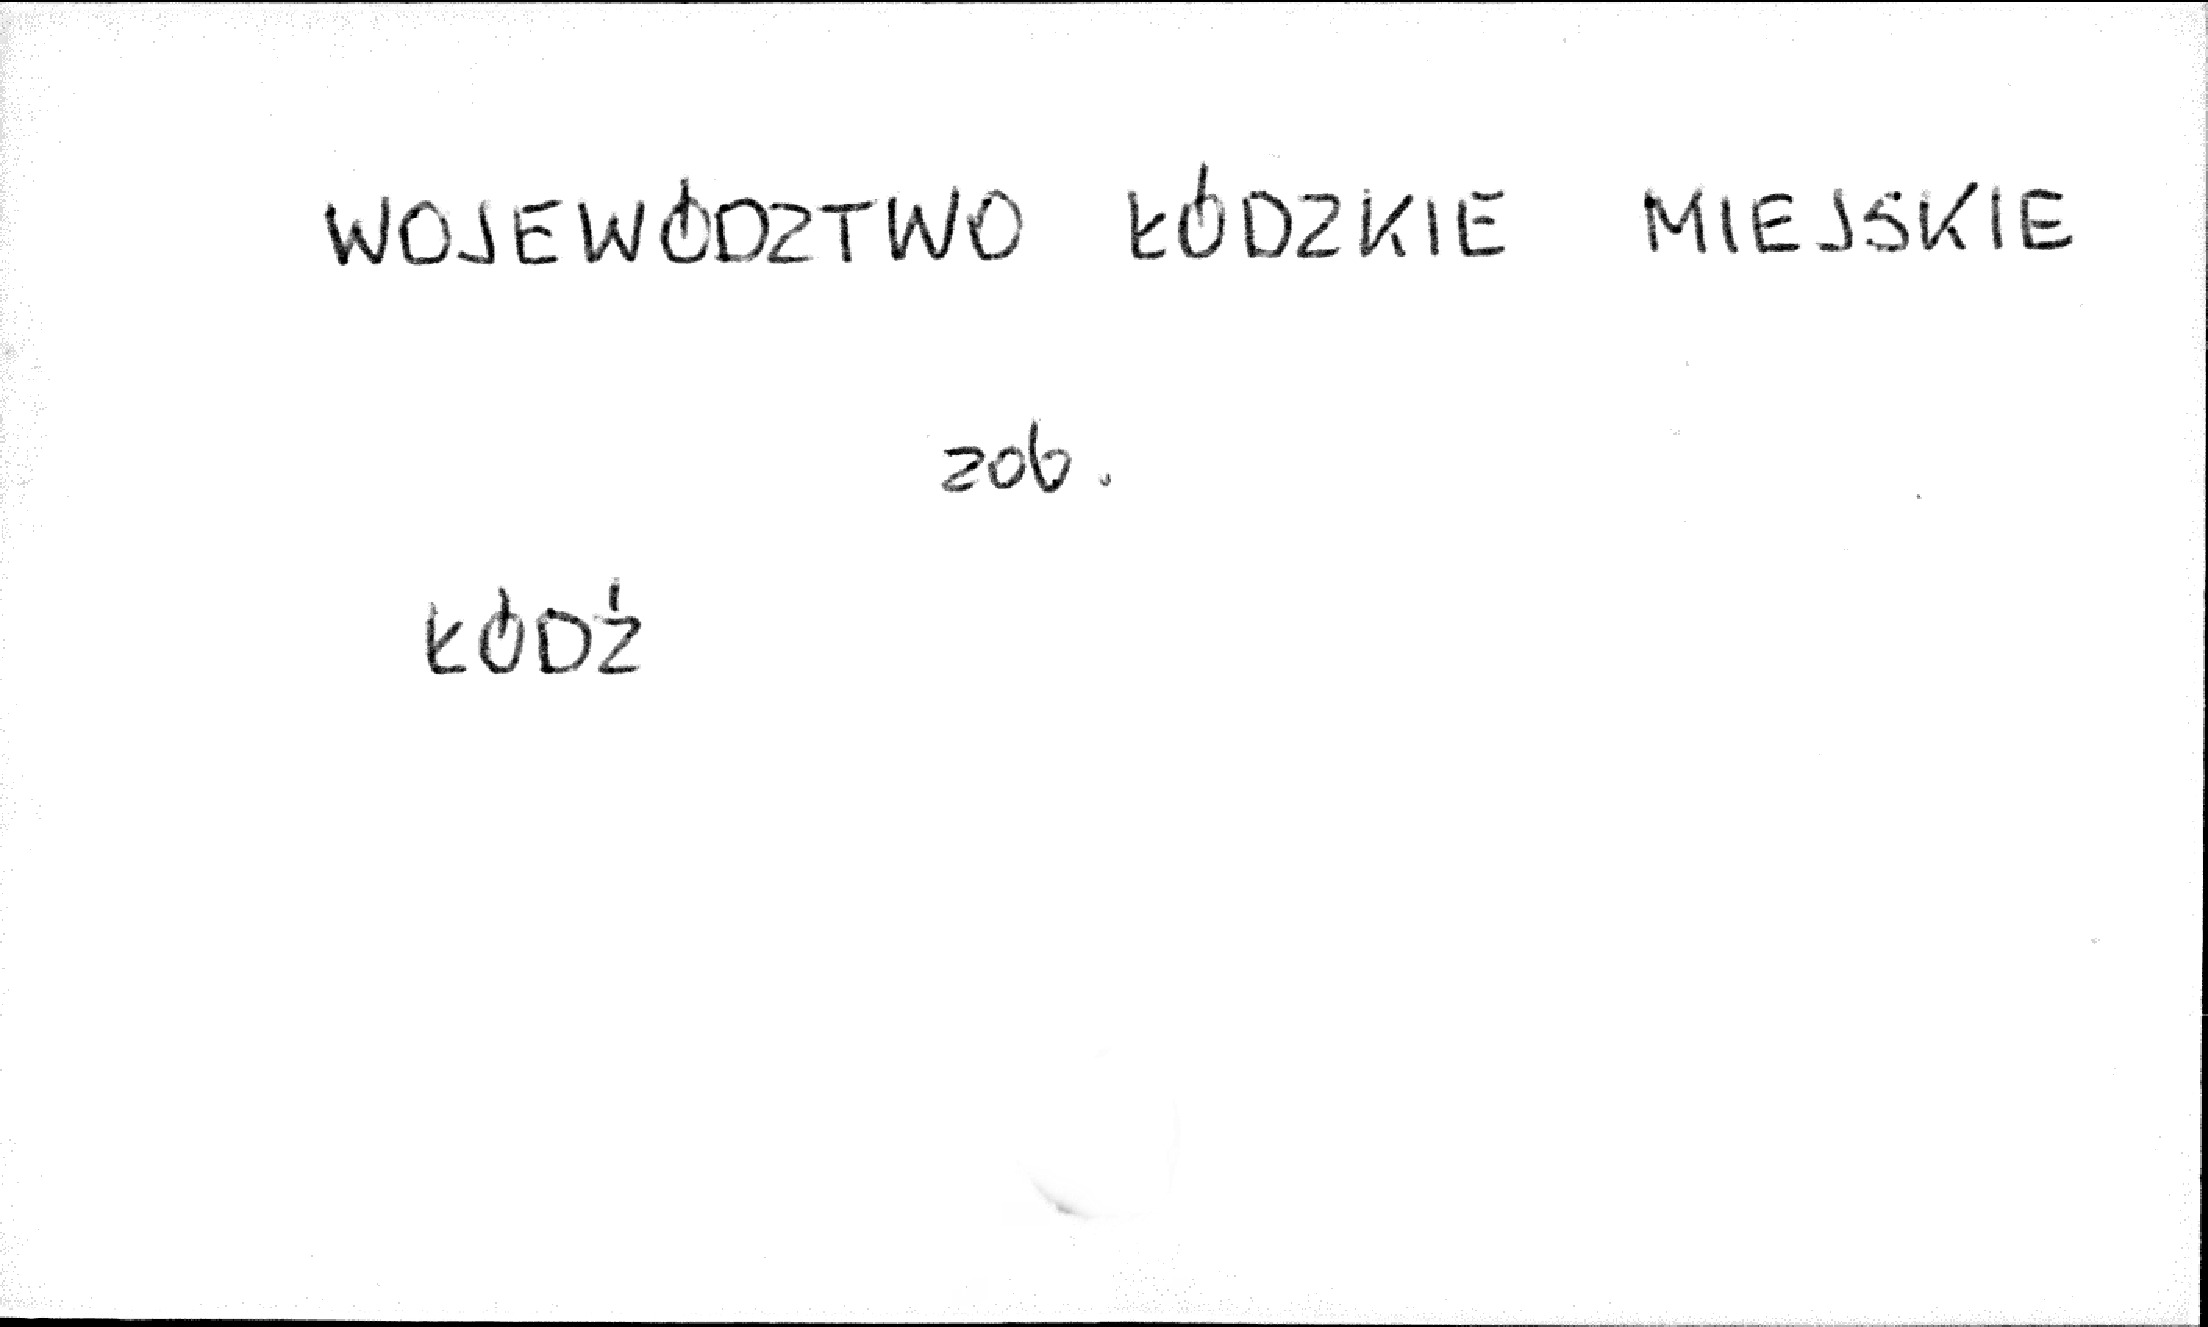 WOJEWÓDZTWO ŁÓDZKIE MIEJSKIE
zob.
ŁÓDŹ